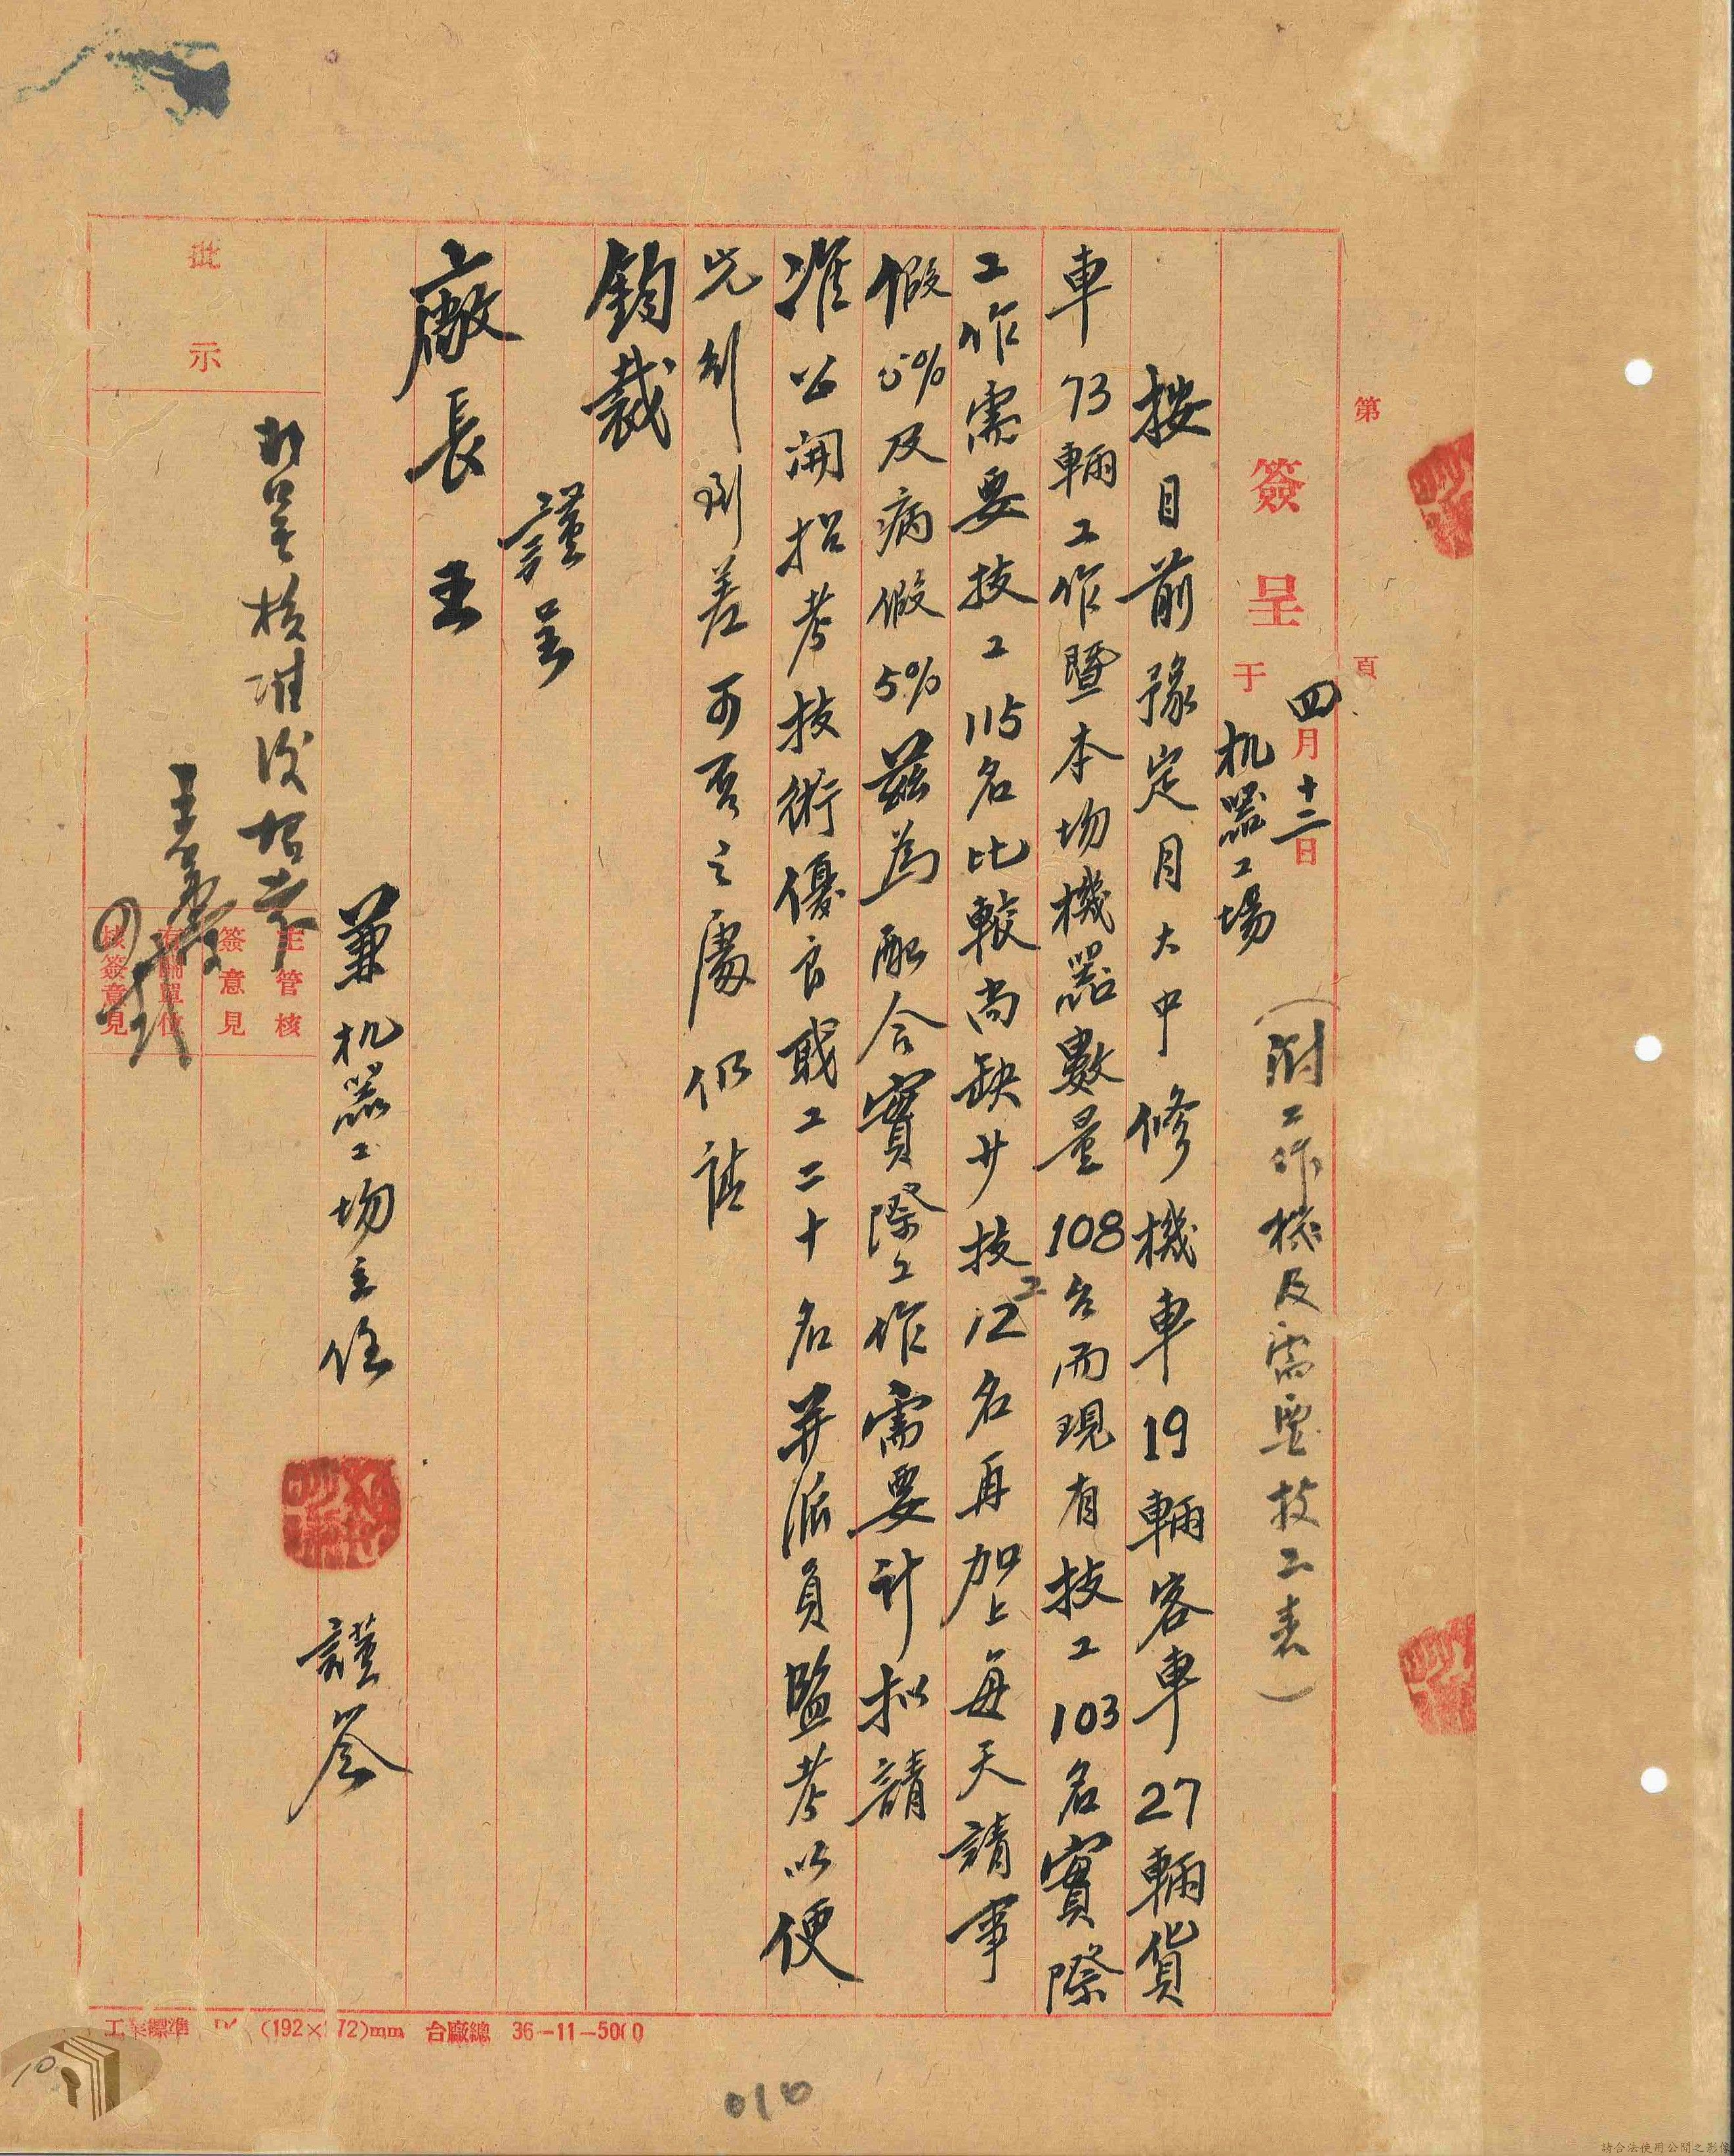 第 頁
簽呈 于 机器工場 四月十三日
（附工作機及需要技工表）
按目前豫定月大中修機車19輛客車27輛貨
車73輛工作暨本場機器數量108台而現有技工103名實際
工作需要技工115名比較尚缺少技工12名再加上每天請事
假5%及病假5%茲為配合實際工作需要計拟請
准公開招考技術優良戝工二十名并派員監考以便
差可否之處仍請
鈞裁
謹呈
廠長 王
兼机器工場主任 謹簽
批示
呈核准後招考
主管核
簽意見
有關單位
核簽意見
工業標準 (192× 72)mm 台廠總 36-11-5000
010
10
請合法使用公開之影像